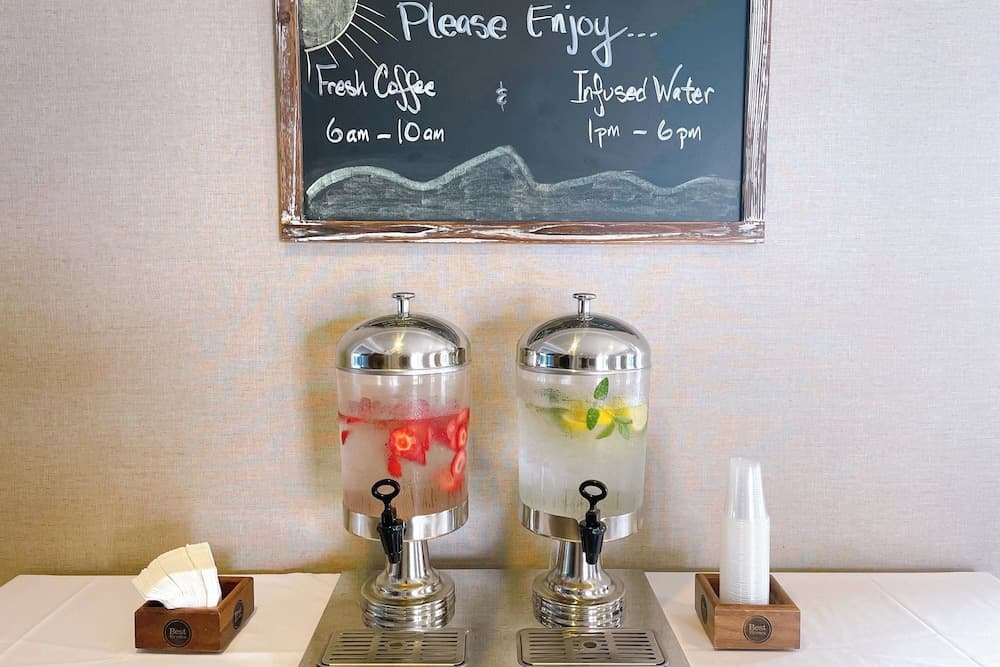 Please Enjoy...
Fresh Coffee & Infused Water
6am - 10am 1pm - 6pm
Best
Best